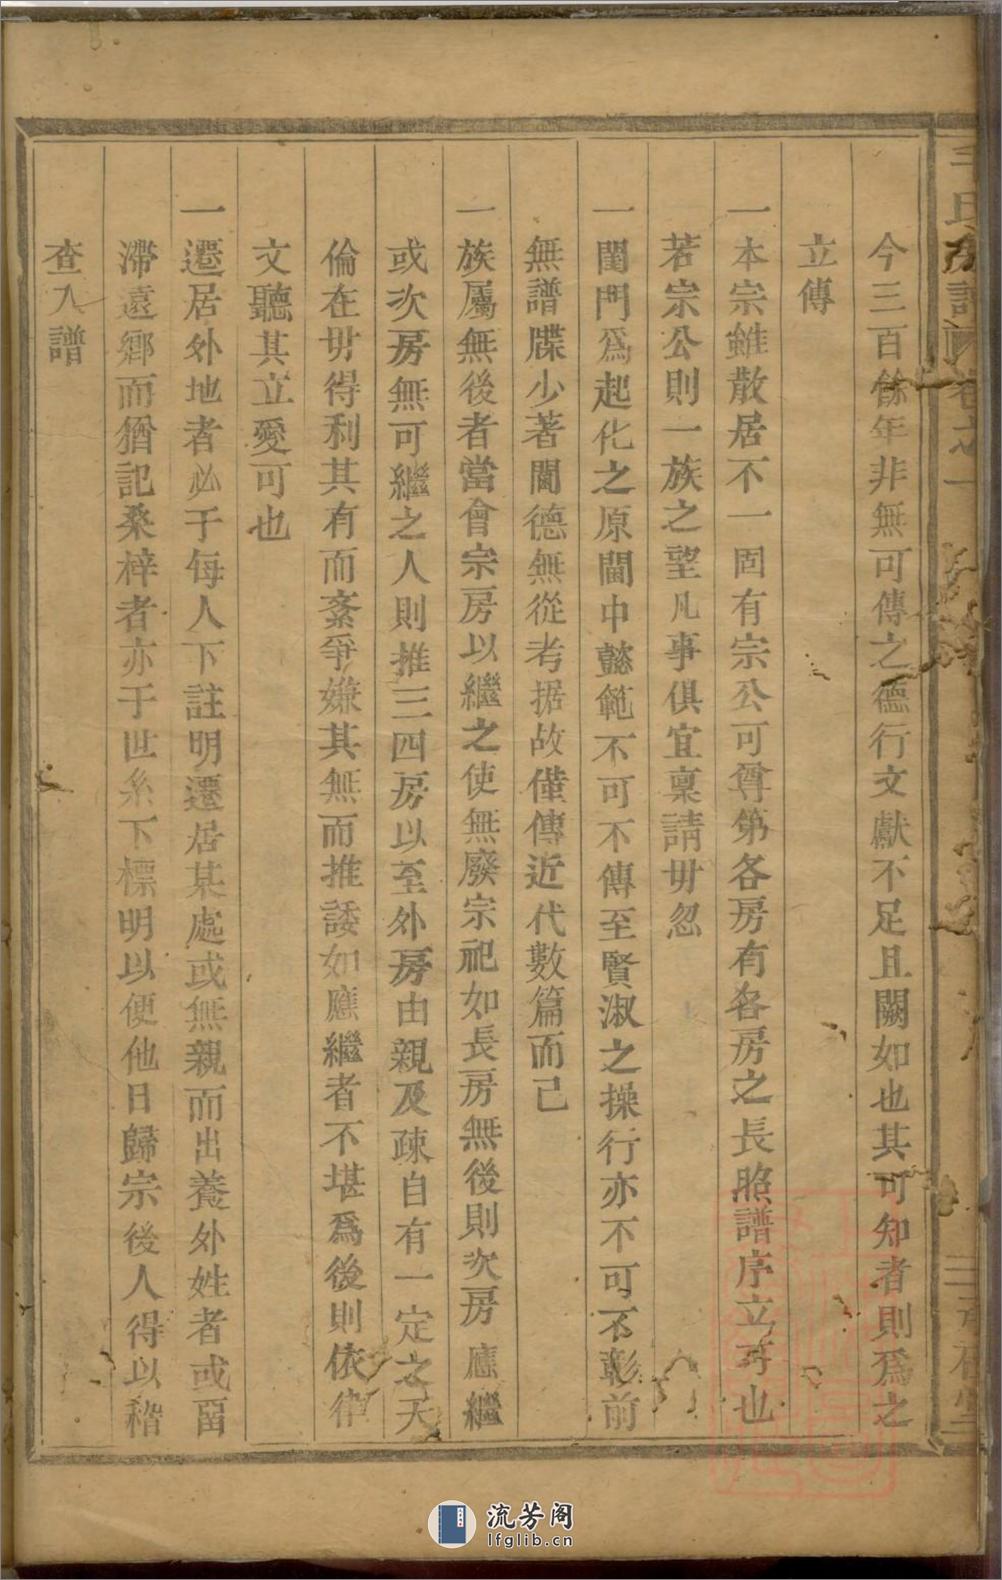 今三百餘年非無可傳之德行文獻不足且闕如也其可知者則爲之
立傳
一本宗雖散居不一固有宗公可尊第各房有各房之長照譜序立可也
若宗公則一族之望凡事俱宜稟請毋忽
一閨門爲起化之原閫中懿範不可不傳至賢淑之操行亦不可不彰前
無譜牒少著閫德無從考据故僅傳近代數篇而已
一族屬無後者當會宗房以繼之使無廢宗祀如長房無後則次房應繼
或次房無可繼之人則推三四房以至外房由親及疎自有一定之天
倫在毋得利其有而紊爭嫌其無而推諉如應繼者不堪爲後則依律
文聽其立愛可也
一遷居外地者必于每人下註明遷居某處或無親而出養外姓者或畱
滯遠鄉而猶記桑梓者亦于世系下標明以便他日歸宗後人得以稽
查入譜
王氏族譜 卷之一
三
流芳阁
lfglib.cn